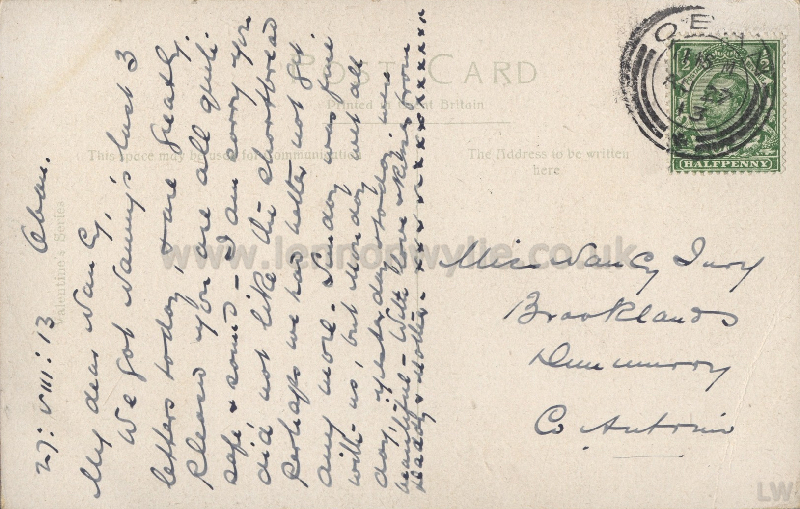 POST CARD
Printed in Great Britain
This space may be used for communication
The Address to be written
here
Valentine's Series
27: VIII: 13 Oban.
My dear Nancy,
We got Nanny's last 3
letters today, & are greatly
pleased you are all quite
safe & sound - I am sorry you
did not like the shortbread
perhaps we had better not get
any more - Sunday was fine
with us, but Monday wet all
day, yesterday & today were
beautiful - With love & kisses from
Daddy & Mother - xxxxxxxxxxxx
Miss Nancy Ivory
Brooklands
Dunmurry
Co Antrim
HALFPENNY
www.lennonwylie.co.uk
LW